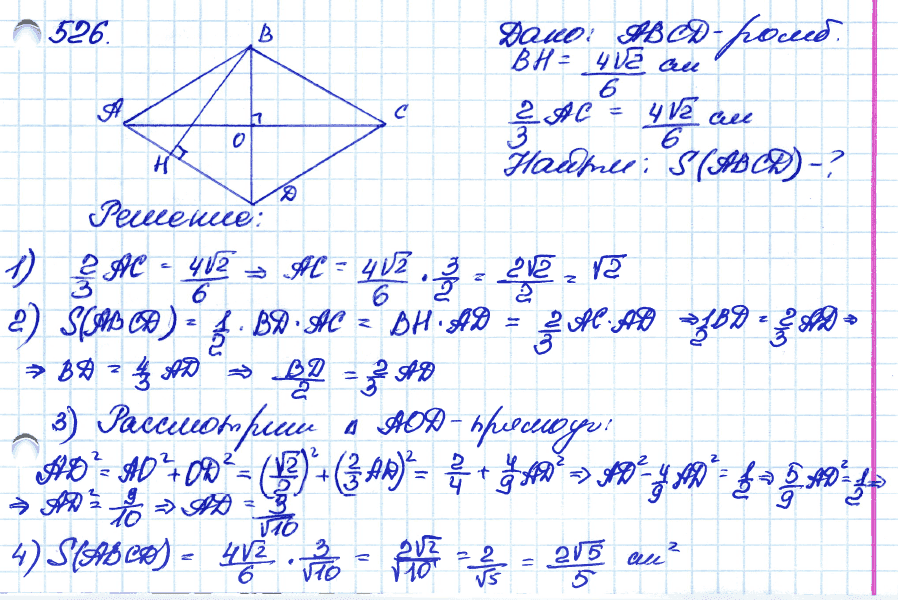 526.
Дано: ABCD - ромб.
BH = 4√2/6 см
2/3 AC = 4√2/6 см
Найти: S(ABCD) - ?
B
A
C
O
H
D
Решение:
1) 2/3 AC = 4√2/6 ⇒ AC = 4√2/6 · 3/2 = 2√2/2 = √2
2) S(ABCD) = 1/2 · BD · AC = BH · AD = 2/3 AC · AD ⇒ 1/2 BD = 2/3 AD ⇒
⇒ BD = 4/3 AD ⇒ BD/2 = 2/3 AD
3) Рассмотрим △ AOD - прямоуг:
AD² = AO² + OD² = (√2/2)² + (2/3 AD)² = 2/4 + 4/9 AD² ⇒ AD² - 4/9 AD² = 1/2 ⇒ 5/9 AD² = 1/2 ⇒
⇒ AD² = 9/10 ⇒ AD = 3/√10
4) S(ABCD) = 4√2/6 · 3/√10 = 2√2/√10 = 2/√5 = 2√5/5 см²